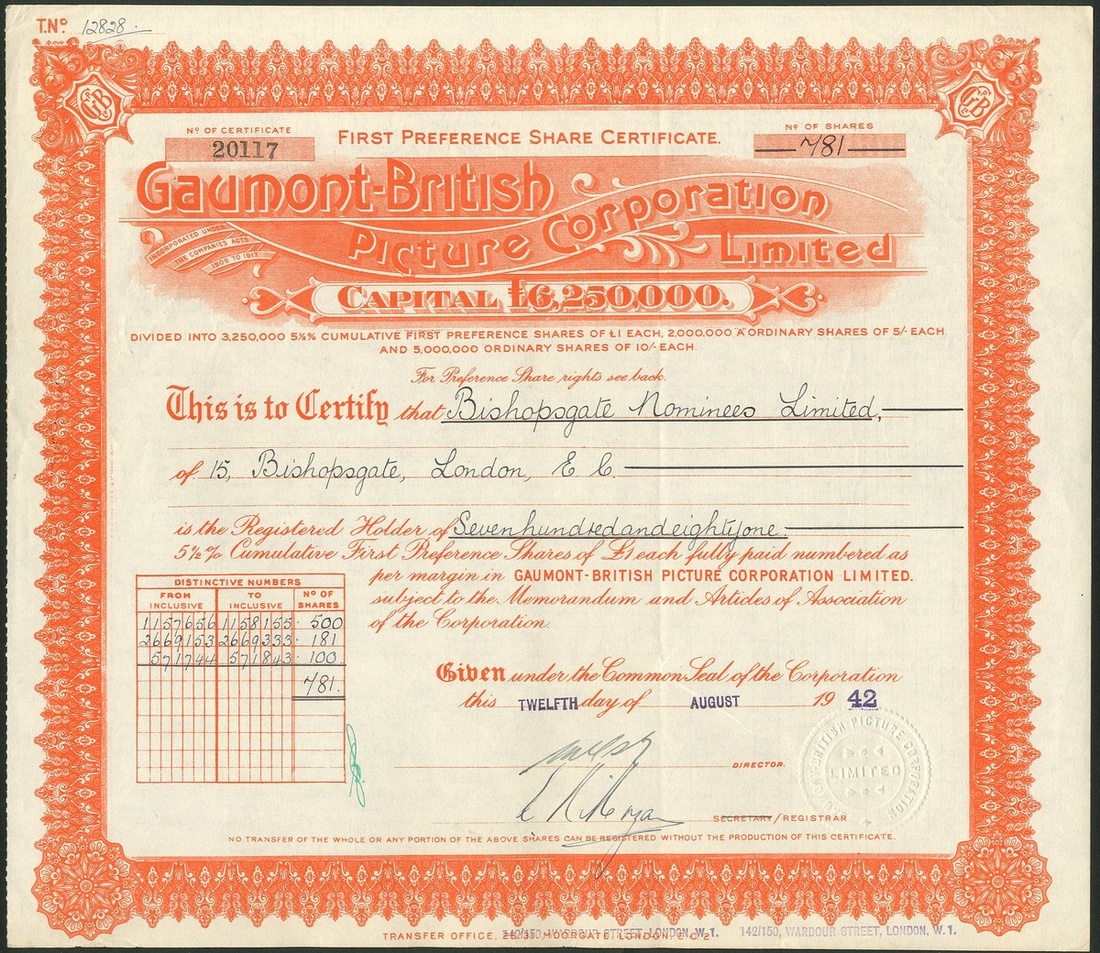 T.Nº 12828.
GB
GB
Nº OF CERTIFICATE
20117
FIRST PREFERENCE SHARE CERTIFICATE.
Nº OF SHARES
781
Gaumont-British
Picture Corporation
Limited
INCORPORATED UNDER
THE COMPANIES ACTS
1908 TO 1917
CAPITAL £6,250,000.
DIVIDED INTO 3,250,000 5½% CUMULATIVE FIRST PREFERENCE SHARES OF £1 EACH, 2,000,000 "A" ORDINARY SHARES OF 5/- EACH
AND 5,000,000 ORDINARY SHARES OF 10/- EACH.
For Preference Share rights see back.
This is to Certify that Bishopsgate Nominees Limited,
of 15, Bishopsgate, London, E.C.
is the Registered Holder of Seven hundred and eighty one
5½% Cumulative First Preference Shares of £1 each fully paid numbered as
per margin in GAUMONT-BRITISH PICTURE CORPORATION LIMITED.
subject to the Memorandum and Articles of Association
of the Corporation.
DISTINCTIVE NUMBERS
FROM INCLUSIVE TO INCLUSIVE Nº OF SHARES
1157656 1158155 500
2669153 2669333 181
571744 571843 100
781.
Given under the Common Seal of the Corporation
this TWELFTH day of AUGUST 1942
DIRECTOR.
SECRETARY/REGISTRAR
GAUMONT-BRITISH PICTURE CORPORATION
LIMITED
NO TRANSFER OF THE WHOLE OR ANY PORTION OF THE ABOVE SHARES CAN BE REGISTERED WITHOUT THE PRODUCTION OF THIS CERTIFICATE.
TRANSFER OFFICE, 25/31, MOORGATE, LONDON, E.C.2.
142/150, WARDOUR STREET, LONDON, W.1.
142/150, WARDOUR STREET, LONDON, W.1.